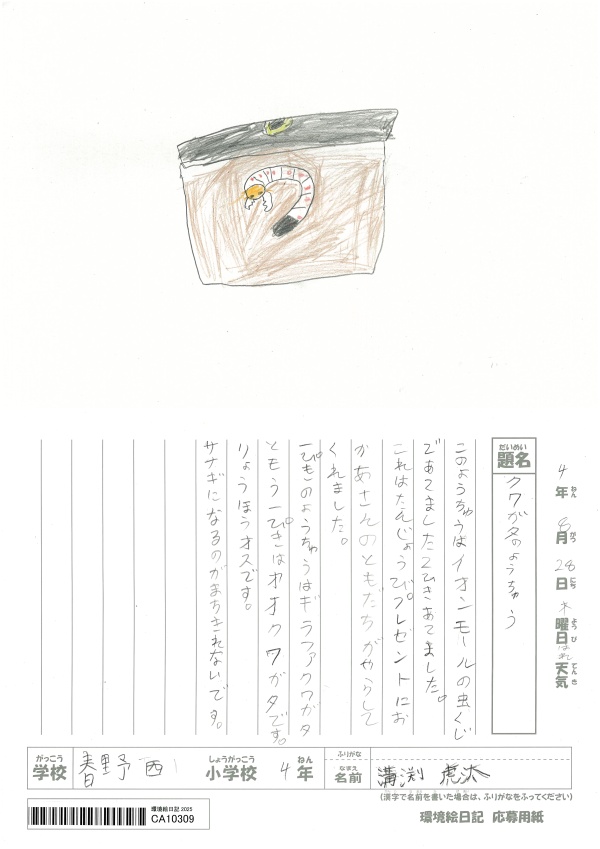 4年ねん 8月がつ 28日にち 木曜日ようび はれ天気てんき
だいめい
題名
クワガタのようちゅう
このようちゅうはイオンモールの虫くじ
であてました2ひきあてました。
これはたんじょうびプレゼントにお
かあさんのともだちがやらして
くれました。
一ぴきのようちゅうはギラファクワガタ
ともう一ぴきはオオクワガタです。
りょうほうオスです。
サナギになるのがまちきれないです。
がっこう
学校 春野西 しょうがっこう 小学校 4 ねん 年
ふりがな
なまえ
名前 溝渕 虎汰
(漢字で名前を書いた場合は、ふりがなをふってください)
環境絵日記 2025
CA10309
環境絵日記 応募用紙